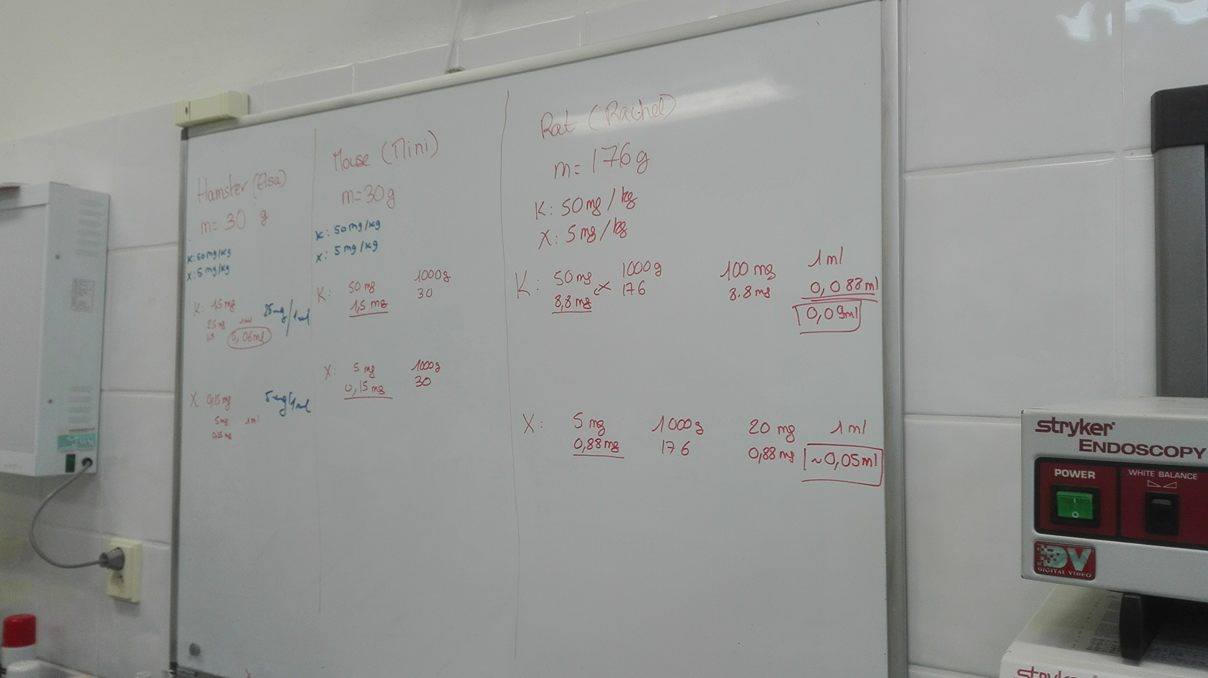 Hamster (Elsa)
m= 30 g
K: 50 mg/kg
X: 5 mg/kg
K: 1,5 mg
25 mg 1ml 25 mg/1ml
1,5 0,06ml
X 0,15 mg 5 mg/1ml
5mg 1ml
0,15 mg
Mouse (Mini)
m=30g
K: 50 mg/kg
X: 5 mg/kg
K: 50 mg 1000g
1,5 mg 30
X: 5 mg 1000g
0,15 mg 30
Rat (Rachel)
m= 176 g
K: 50 mg/kg
X: 5 mg/kg
K: 50 mg 1000g 100 mg 1 ml
8,8 mg x 176 8.8 mg 0,088 ml
0,09ml
X: 5 mg 1000g 20 mg 1 ml
0,88 mg 176 0,88 mg ~0,05ml
stryker
ENDOSCOPY
POWER
WHITE BALANCE
DV
DIGITAL VIDEO
stryker